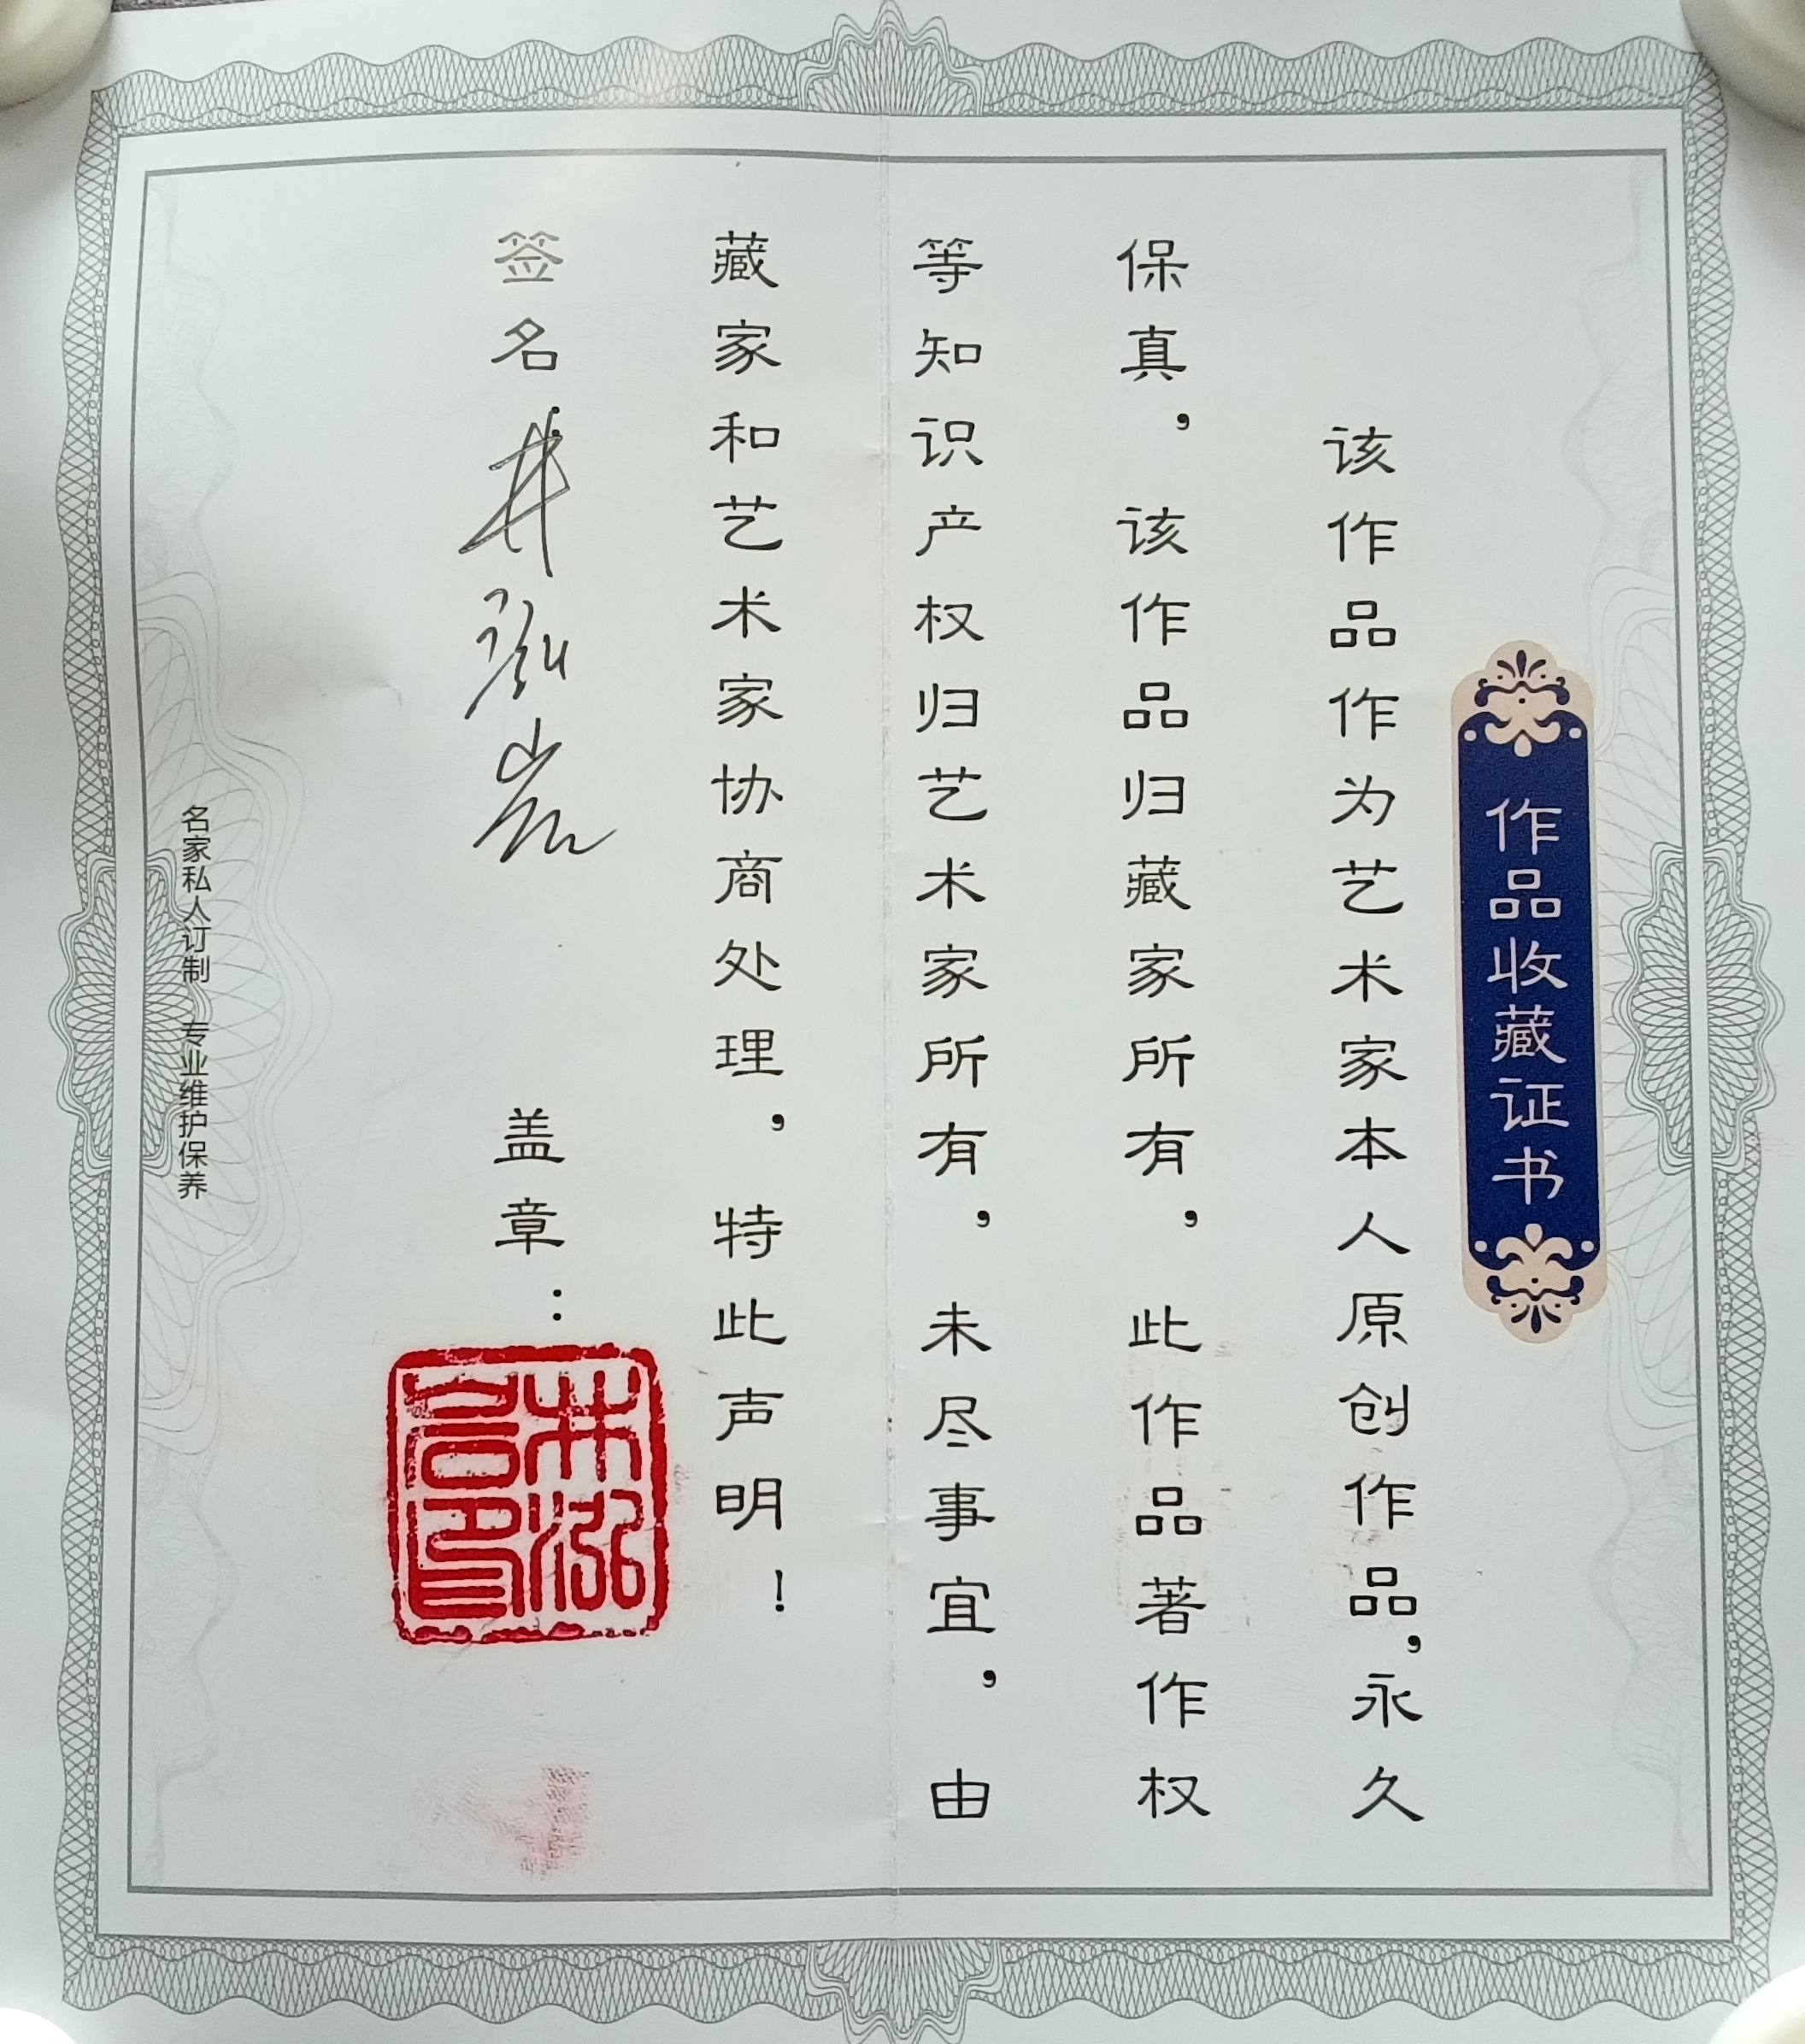 作品收藏证书
该作品作为艺术家本人原创作品，永久
保真，该作品归藏家所有，此作品著作权
等知识产权归艺术家所有，未尽事宜，由
藏家和艺术家协商处理，特此声明！
签名：井泓 盖章：
井泓言印
名家私人订制 专业维护保养